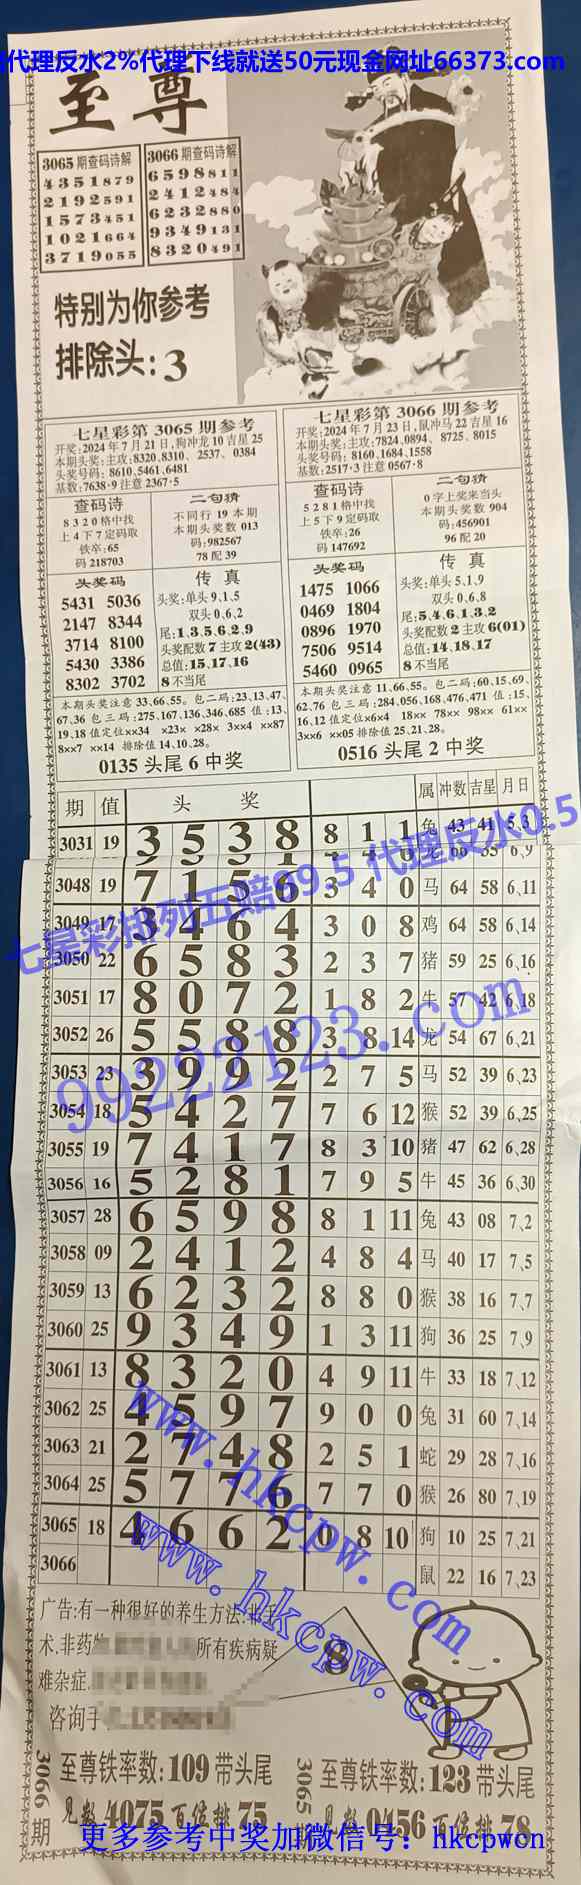 代理反水2%代理下线就送50元现金网址66373.com
至尊
3065期查码诗解
4351879
2192591
1573451
1021664
3719055
3066期查码诗解
6598811
2412484
6232880
9349131
8320491
特别为你参考
排除头:3
七星彩第3065期参考
开奖:2024年7月21日,狗冲龙10吉星25
本期头奖:主攻:8320,8310、2537、0384
头奖号码:8610,5461,6481
基数:7638·9注意2367·5
查码诗
8320格中找
上4下7定码取
铁卒:65
码218703
二句猜
不同行19本期
本期头奖数013
码:982567
78配39
头奖码
5431 5036
2147 8344
3714 8100
5430 3386
8302 3702
传真
头奖:单头9、1、5
双头0、6、2
尾:1、3、5、6、2、9
头奖配数7主攻2(43)
总值:15、17、16
8不当尾
本期头奖注意33、66、55。包二码:23、13、47、
67、36包三码:275、167、136、346、685值:13、
19、18值定位××34 ×23× ×28× 3××4 ××87
8××7 ××14 排除值14、10、28。
0135头尾6中奖
七星彩第3066期参考
开奖:2024年7月23日,鼠冲马22吉星16
本期头奖:主攻:7824,0894、8725、8015
头奖号码:8160,1684,1558
基数:2517·3注意0567·8
查码诗
5281格中找
上5下9定码取
铁卒:26
码147692
二句猜
0字上奖来当头
本期头奖数904
码:456901
96配20
头奖码
1475 1066
0469 1804
0896 1970
7506 9514
5460 0965
传真
头奖:单头5、1、9
双头0、6、8
尾:5、4、6、1、3、2
头奖配数2主攻6(01)
总值:14、18、17
8不当尾
本期头奖注意11、66、55。包二码:60、15、69、
62、76包三码:284、056、168、476、471值:15、
16、12值定位×6×4 18×× 78×× 98×× 61××
3××6 ××05排除值25、21、28。
0516头尾2中奖
期 值 头奖 属 冲数 吉星 月日
3031 19 3 5 3 8 8 1 1 兔 43 41 5、3
3048 19 7 1 5 6 3 4 0 马 64 58 6、11
3049 17 3 4 6 4 3 0 8 鸡 64 58 6、14
3050 22 6 5 8 3 2 3 7 猪 59 25 6、16
3051 17 8 0 7 2 1 8 2 牛 57 42 6、18
3052 26 5 5 8 8 3 8 14 龙 54 67 6、21
3053 23 3 9 9 2 2 7 5 马 52 39 6、23
3054 18 5 4 2 7 7 6 12 猴 52 39 6、25
3055 19 7 4 1 7 8 3 10 猪 47 62 6、28
3056 16 5 2 8 1 7 9 5 牛 45 36 6、30
3057 28 6 5 9 8 8 1 11 兔 43 08 7、2
3058 09 2 4 1 2 4 8 4 马 40 17 7、5
3059 13 6 2 3 2 8 8 0 猴 38 16 7、7
3060 25 9 3 4 9 1 3 11 狗 36 25 7、9
3061 13 8 3 2 0 4 9 11 牛 33 18 7、12
3062 25 4 5 9 7 9 0 0 兔 31 60 7、14
3063 21 2 7 4 8 2 5 1 蛇 29 28 7、16
3064 25 5 7 7 6 7 7 0 猴 26 80 7、19
3065 18 4 6 6 2 0 8 10 狗 10 25 7、21
3066 鼠 22 16 7、23
七星彩排列五赔69.5 代理反水0.5
99222123.com
www.hkcpw.com
www.hkcpw.com
广告:有一种很好的养生方法:非手
术、非药 所有疾病疑
难杂症
咨询手
8
3066期
至尊铁率数:109带头尾
见数4075百位排75
3065期
至尊铁率数:123带头尾
见数0456百位排78
更多参考中奖加微信号:hkcpwcn